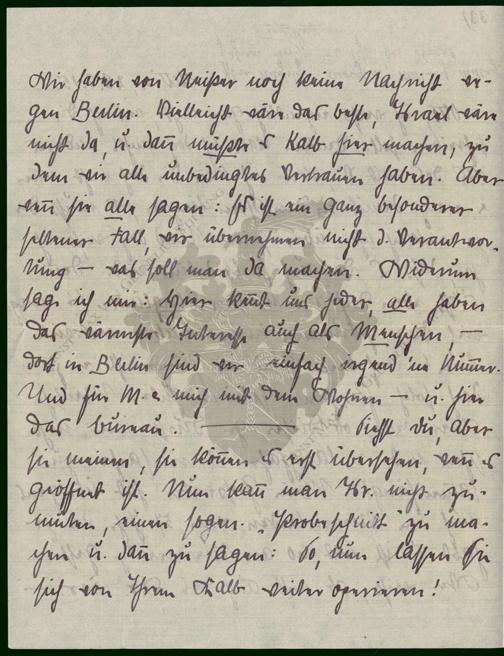 Wir haben von Neißer noch keine Nachricht we-
gen Berlin. Vielleicht wär das beste, Israel wäre
nicht da, u. dann müßte es Kalb hier machen, zu
dem wir alle unbedingtes Vertrauen haben. Aber
wenn sie alle sagen: Es ist ein ganz besonderer
seltener Fall wir übernehmen nicht d. Verantwor-
tung — was soll man da machen. Widerum
sage ich mir: Hier kennt uns jeder, alle haben
das wärmste Interesse auch als Menschen, —
dort in Berlin sind wir einfach irgend 'ne Nummer.
Und für M. u. mich mit dem Wohnen — u. hier
das Bureau. Siehst Du, aber
sie meinen, sie können es erst übersehen, wenn es
geöffnet ist. Nun kann man Isr. nicht zu-
muten, einen sogen. „Probeschnitt" zu ma-
chen u. dann zu sagen: So, nun lassen Sie
sich von Ihrem Kalb weiter operieren!